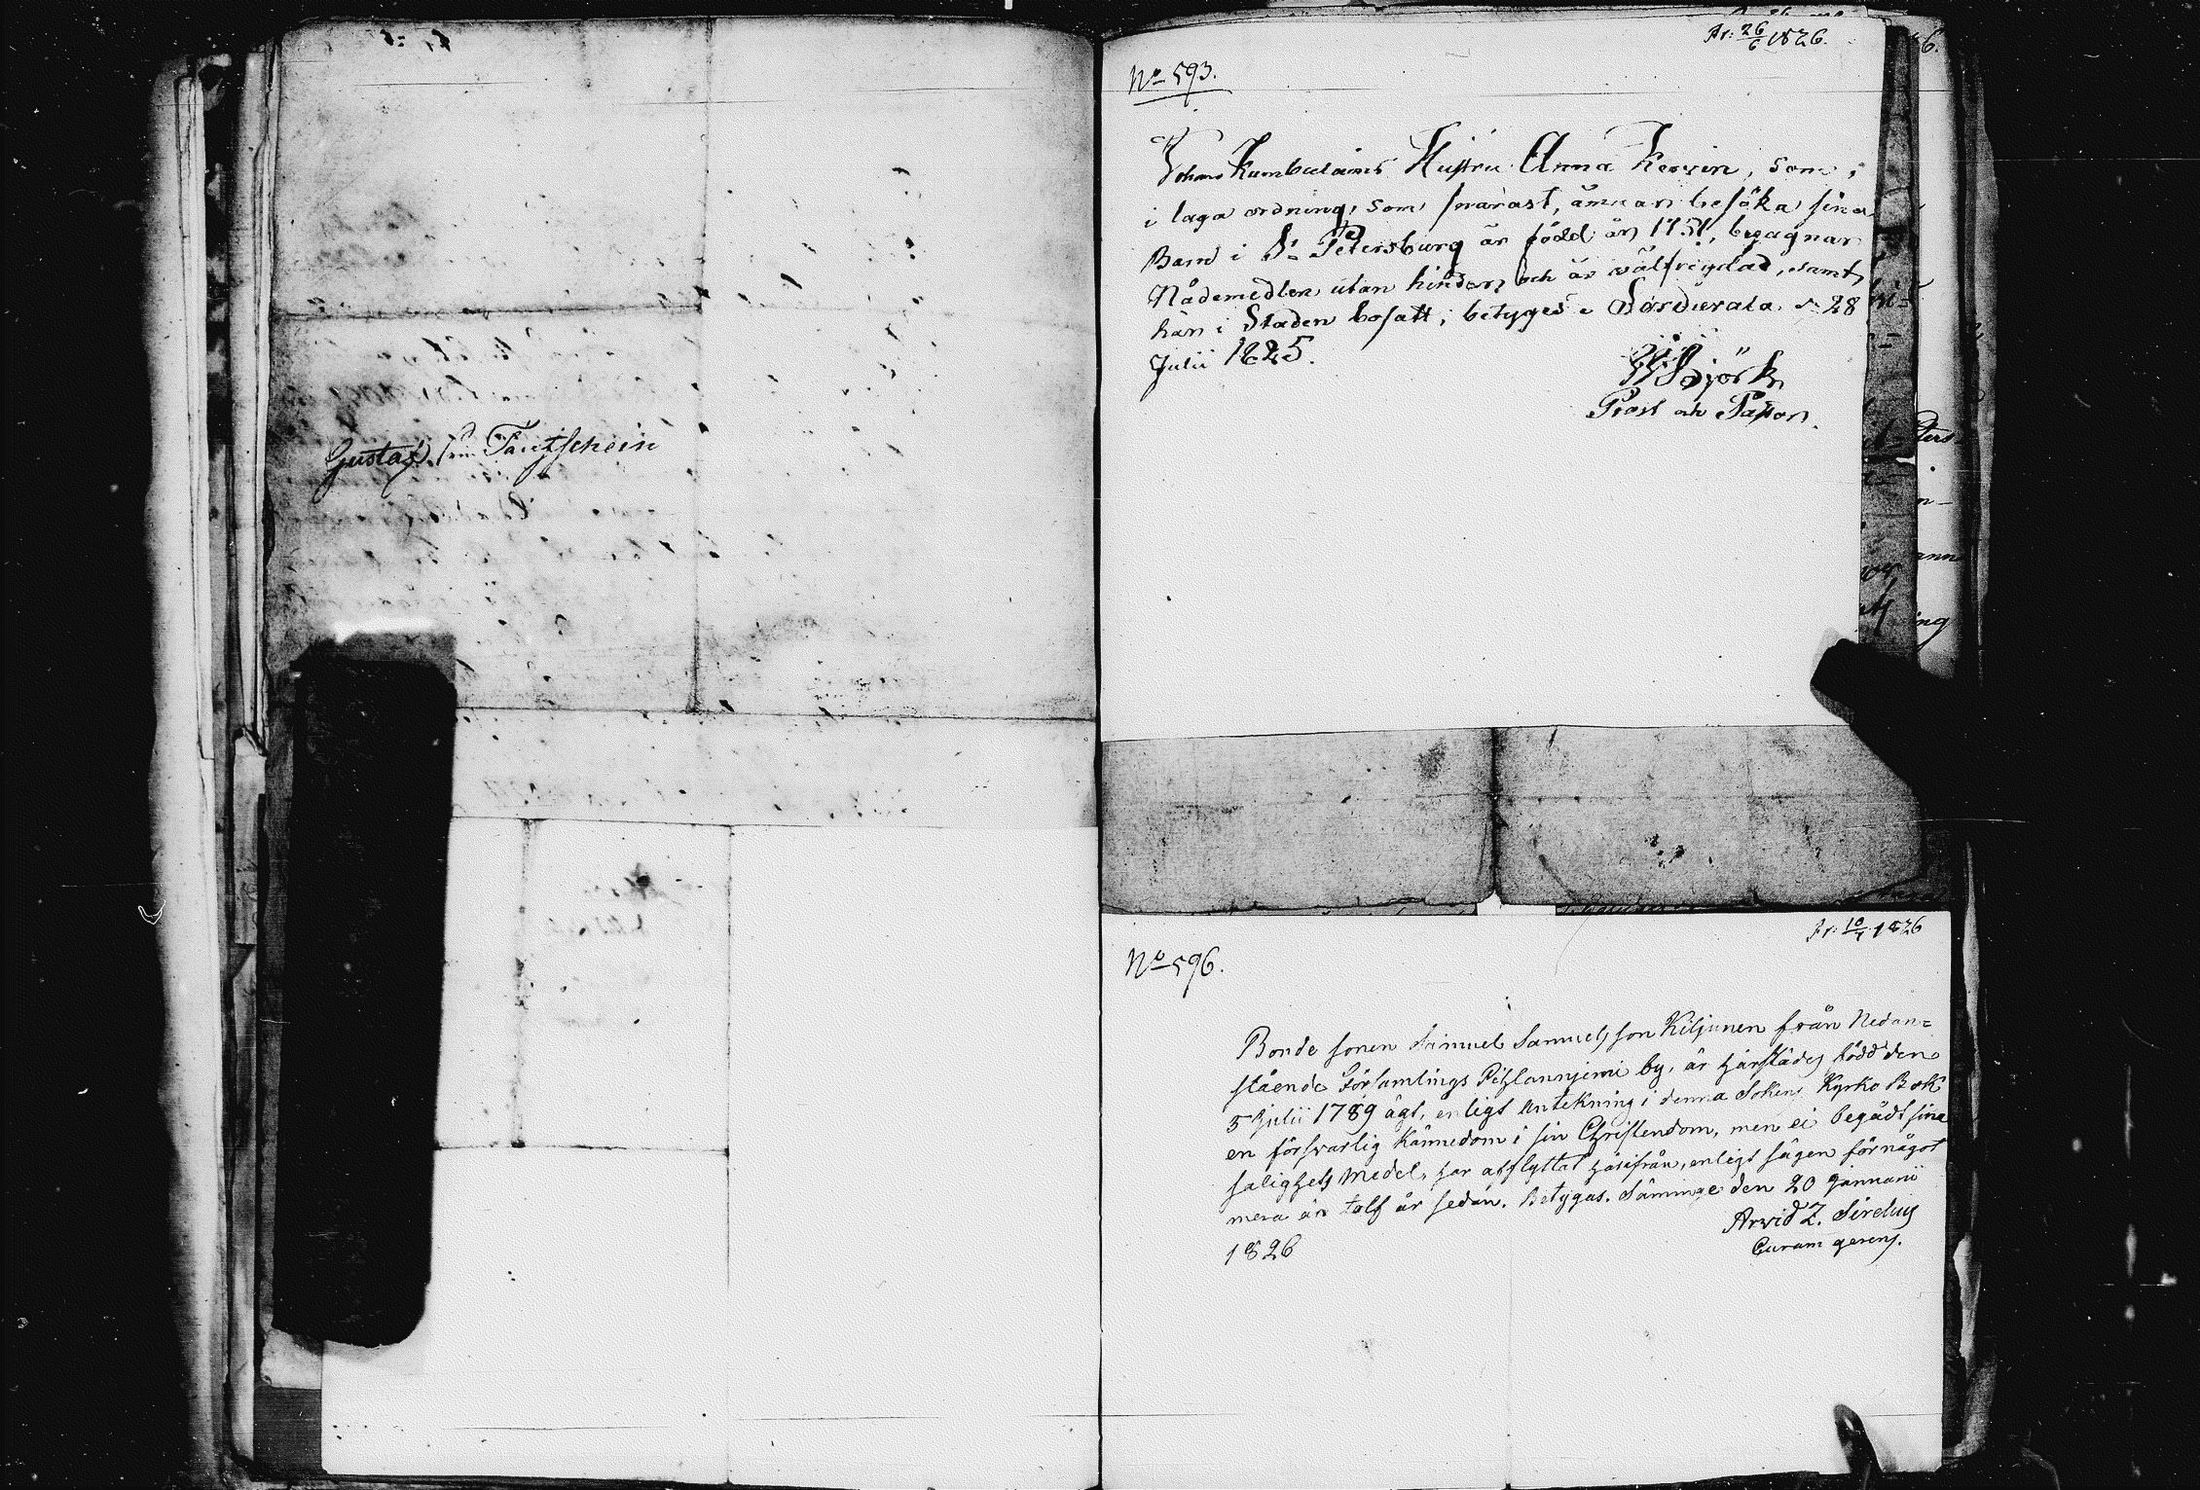 Gustaf Taütschein
Pr: 26/6 1826.
No 593.
Johan Kumbulains Hustru Anna Kerwin, som i
i laga ordning, som snarast, ämnar besöka sina
Barn i St Petersburg är född år 1751, begagnar
Nådemedlen utan hinder och är wälfreydad, samt
här i Staden bosatt; betygas i Sordavala d. 28
Julii 1825.
Björk
Prost och Pastor.
Pr: 10/7 1826
No 596.
Bonde sonen Samuel Samuelsson Kiljunen från Nedan=
stående Församlings Pihlaniemi by, är härstädes född den
5 Julii 1789 ägt, enligt Antekning i denna Sokens Kyrko Bok
en försvarlig Kännedom i sin Christendom, men ei begådt sina
salighets Medel, har afflyttat härifrån, enligt sägen för något
mera än tolf år sedan. Betygas. Säminge den 20 Januarii
1826
Arvid Z. Sirelius
Curam gerens.